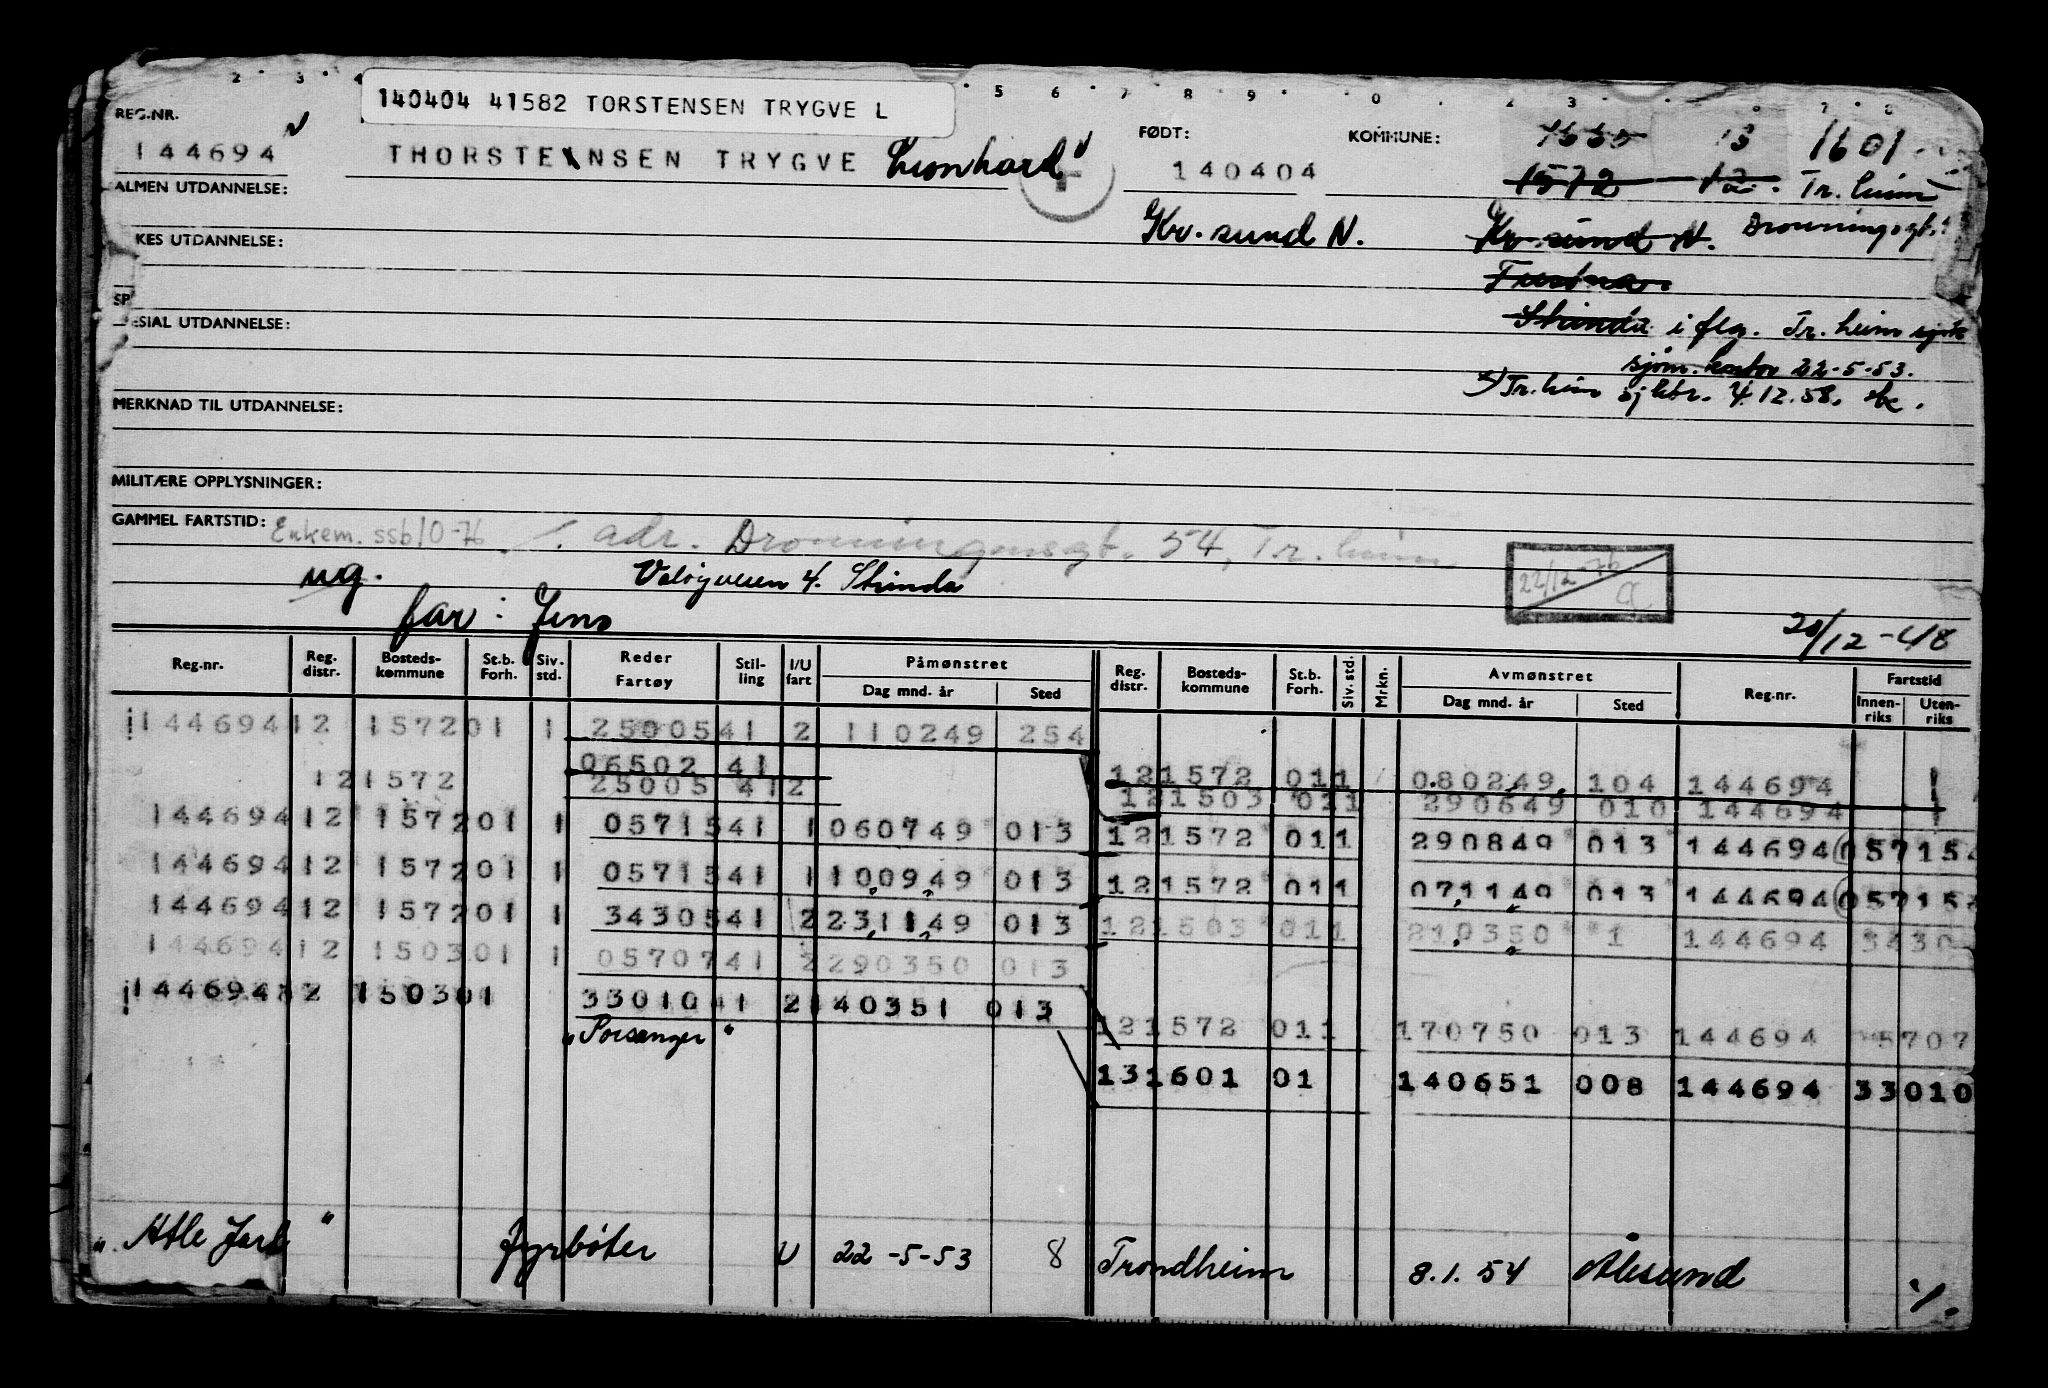 2 3 4 5 6 7 8 9 0 2 3 6 7 8
140404 41582 TORSTENSEN TRYGVE L
REG.NR.
FØDT:
KOMMUNE:
13 1601
144694 THORSTENSEN TRYGVE Leonhard 140404
1572 12. Tr. heim
ALMEN UTDANNELSE:
Kr. sund N. Kr. sund N. Dronningsgt.
KES UTDANNELSE:
Tustna.
SP ESIAL UTDANNELSE:
Strinda i flg. Tr. heim
sjøm. kontor 22-5-53.
Tr. heim sj ktr. 4.12.58.
MERKNAD TIL UTDANNELSE:
MILITÆRE OPPLYSNINGER:
GAMMEL FARTSTID: Enkem. ssb 10-76 adr. Dronningensgt. 54, Tr. heim
22/12-76
ug. Valøyveien 4. Strinda
far: Jens
20/12-48
Reg.nr. Reg. distr. Bosteds-kommune St.b. Forh. Siv. std. Reder Fartøy Stil-ling I/U fart Påmønstret Dag mnd. år Sted Reg. distr. Bosteds-kommune St.b. Forh. Siv. std. Mrkn. Avmønstret Dag mnd. år Sted Reg.nr. Fartstid Innen-riks Uten-riks
144694 12 1572 01 1 25005 41 2 110249 254
06502 41 12 1572 01 1 080249 104 144694
12 1572 25005 41 2 12 1503 01 1 290649 010 144694
144694 12 1572 01 1 05715 41 1 060749 013 12 1572 01 1 290849 013 144694 05715
144694 12 1572 01 1 05715 41 1 100949 013 12 1572 01 1 071149 013 144694 05715
144694 12 1572 01 1 34305 41 2 231149 013 12 1503 01 1 210350 1 144694 3430
144694 12 1503 01 1 05707 41 2 290350 013
144694 12 1503 01 33010 41 2 140351 013
"Porsanger" 12 1572 01 1 170750 013 144694 05707
13 1601 01 140651 008 144694 33010
"Atle Jarl" fyrbøter U 22-5-53 8 Trondheim 8.1.54 Ålesund